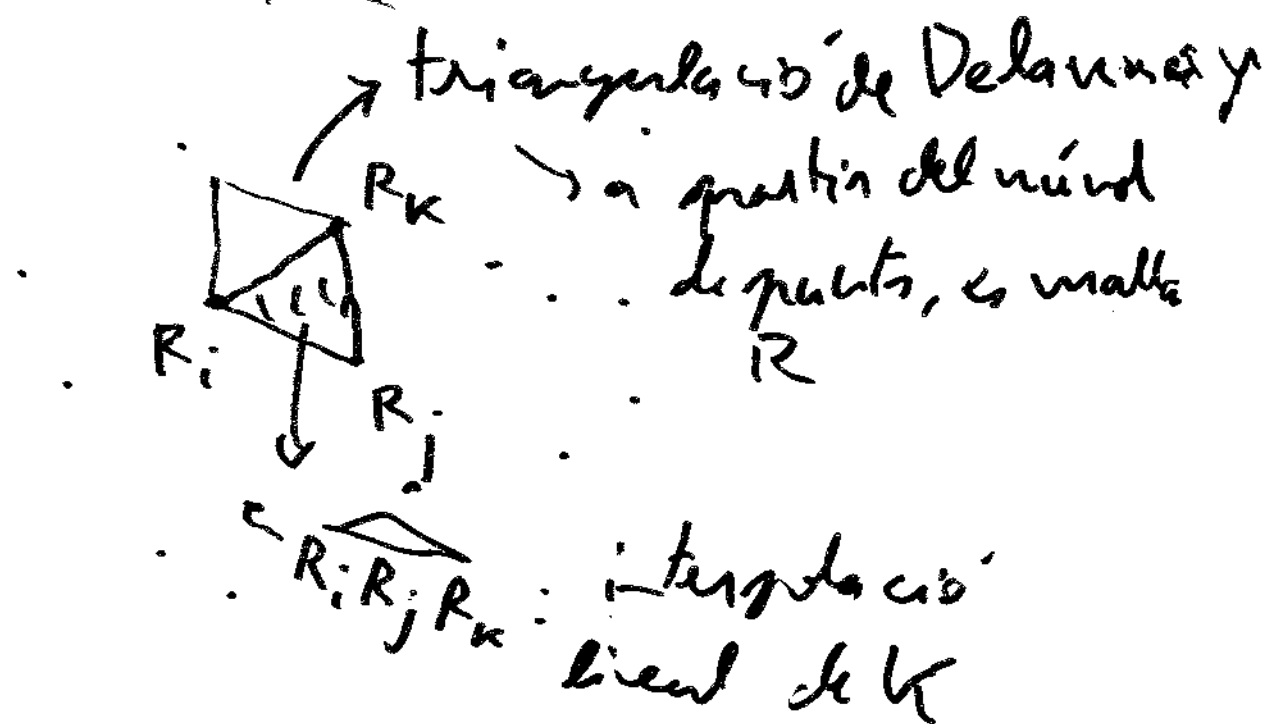 triangulació de Delaunay
R_K
a partir del núvol
de punts, es malla
R
R_i
R_j
R_i R_j R_K : interpolació
lineal de K